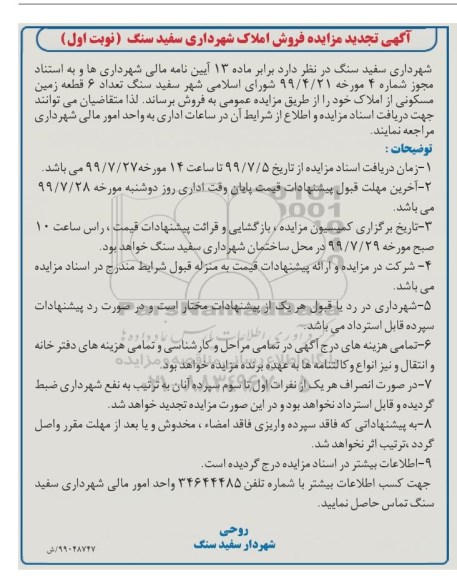 آگهی تجدید مزایده فروش املاک شهرداری سفید سنگ (نوبت اول)
شهرداری سفید سنگ در نظر دارد برابر ماده ۱۳ آیین نامه مالی شهرداری ها و به استناد
مجوز شماره ۴ مورخه ۹۹/۴/۲۱ شورای اسلامی شهر سفید سنگ تعداد ۶ قطعه زمین
مسکونی از املاک خود را از طریق مزایده عمومی به فروش برساند. لذا متقاضیان می توانند
جهت دریافت اسناد مزایده و اطلاع از شرایط آن در ساعات اداری به واحد امور مالی شهرداری
مراجعه نمایند.
توضیحات :
۱-زمان دریافت اسناد مزایده از تاریخ ۹۹/۷/۵ تا ساعت ۱۴ مورخه ۹۹/۷/۲۷ می باشد.
۲-آخرین مهلت قبول پیشنهادات قیمت پایان وقت اداری روز دوشنبه مورخه ۹۹/۷/۲۸
می باشد.
۳-تاریخ برگزاری کمیسیون مزایده ، بازگشایی و قرائت پیشنهادات قیمت ، راس ساعت ۱۰
صبح مورخه ۹۹/۷/۲۹ در محل ساختمان شهرداری سفید سنگ خواهد بود.
۴- شرکت در مزایده و ارائه پیشنهادات قیمت به منزله قبول شرایط مندرج در اسناد مزایده
می باشد.
۵-شهرداری در رد یا قبول هر یک از پیشنهادات مختار است و در صورت رد پیشنهادات
سپرده قابل استرداد می باشد.
۶-تمامی هزینه های درج آگهی در تمامی مراحل و کارشناسی و تمامی هزینه های دفتر خانه
و انتقال و نیز انواع وکالتنامه ها به عهده برنده مزایده خواهد بود.
۷-در صورت انصراف هر یک از نفرات اول تا سوم سپرده آنان به ترتیب به نفع شهرداری ضبط
گردیده و قابل استرداد نخواهد بود و در این صورت مزایده تجدید خواهد شد.
۸-به پیشنهاداتی که فاقد سپرده واریزی فاقد امضاء ، مخدوش و یا بعد از مهلت مقرر واصل
گردد ،ترتیب اثر نخواهد شد.
۹-اطلاعات بیشتر در اسناد مزایده درج گردیده است.
جهت کسب اطلاعات بیشتر با شماره تلفن ۳۴۶۴۴۴۸۵ واحد امور مالی شهرداری سفید
سنگ تماس حاصل نمایید.
روحی
شهردار سفید سنگ
۹۹۰۴۸۷۴۷/ش